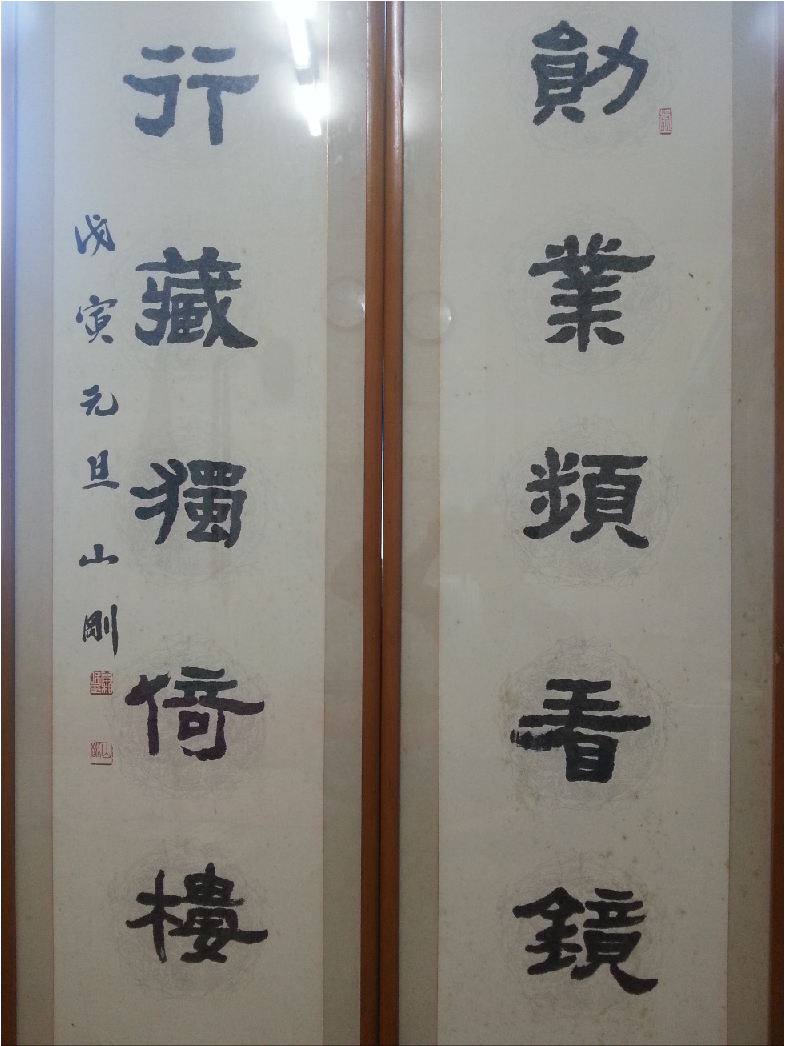 勛業頻看鏡
行藏獨倚樓
戊寅元旦山剛